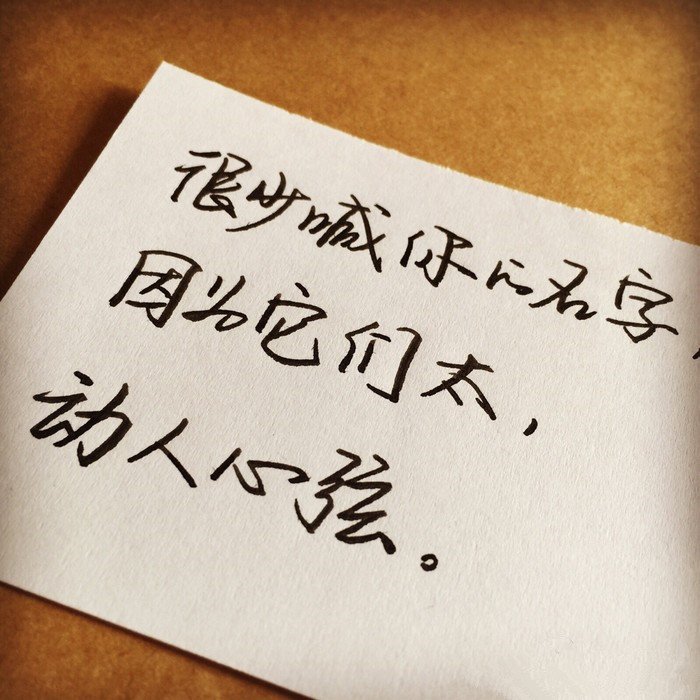 很少喊你的名字，
因为它们太，
动人心弦。